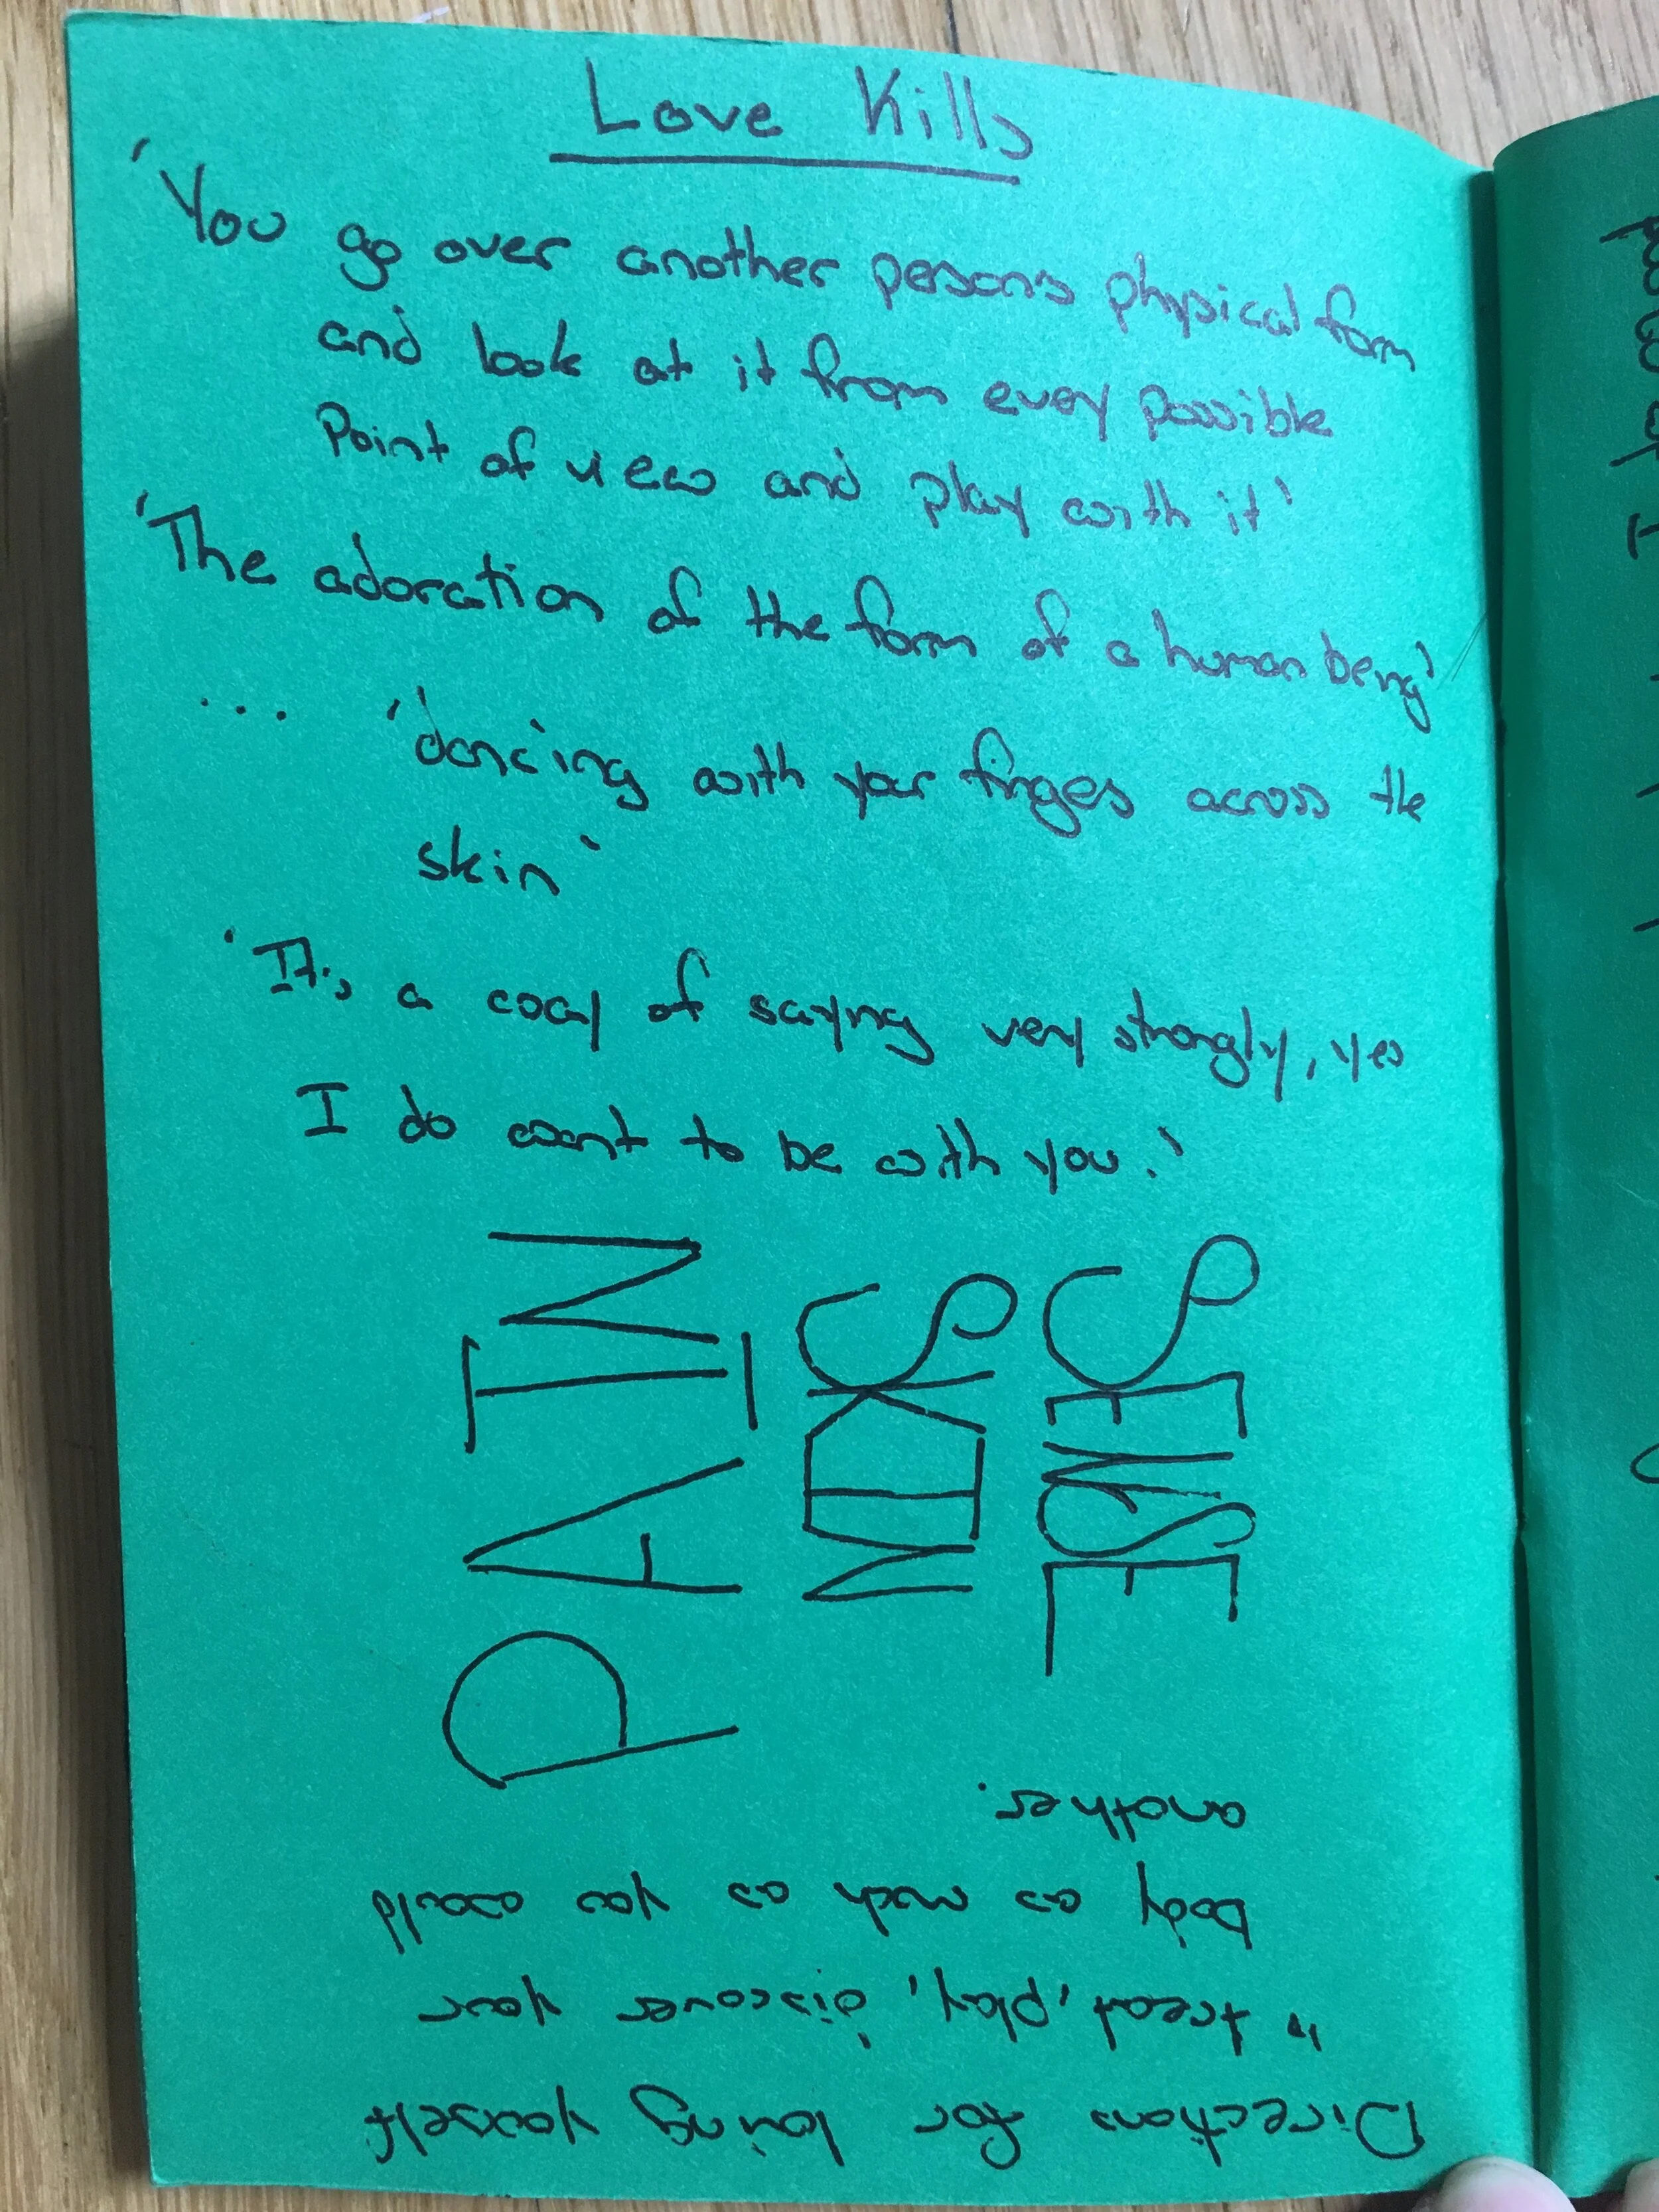 Love Kills
'You go over another persons physical form
and look at it from every possible
Point of view and play with it'
'The adoration of the form of a human being'
... 'dancing with your fingers across the
skin'
'It's a way of saying very strongly, yes
I do want to be with you.'
PAIN
Directions for loving yourself
" treat, 'play', discover your
body as much as you would
another.